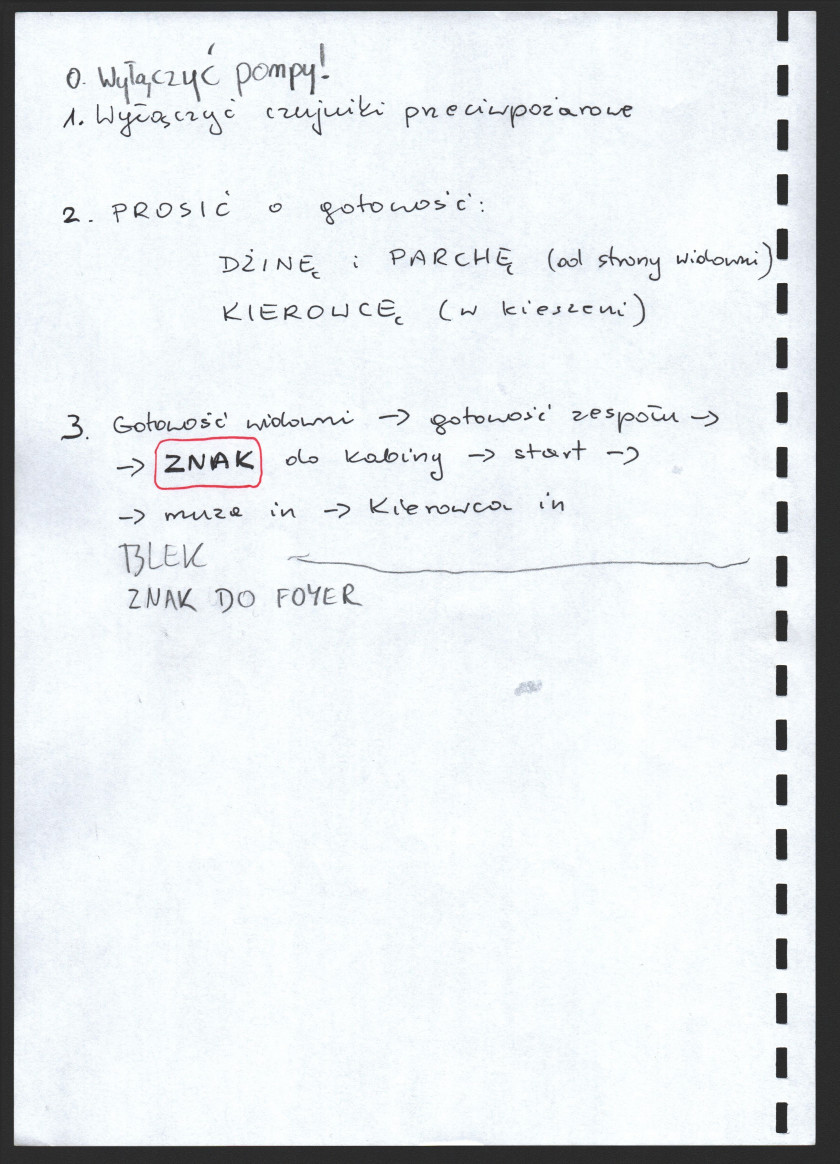 0. Wyłączyć pompy!
1. Wyłączyć czujniki przeciwpożarowe
2. PROSIĆ o gotowość:
DŻINĘ i PARCHĘ (od strony widowni)
KIEROWCĘ (w kieszeni)
3. Gotowość widowni → gotowość zespołu →
→ ZNAK do kabiny → start →
→ muza in → Kierowca in
BLEK
ZNAK DO FOYER